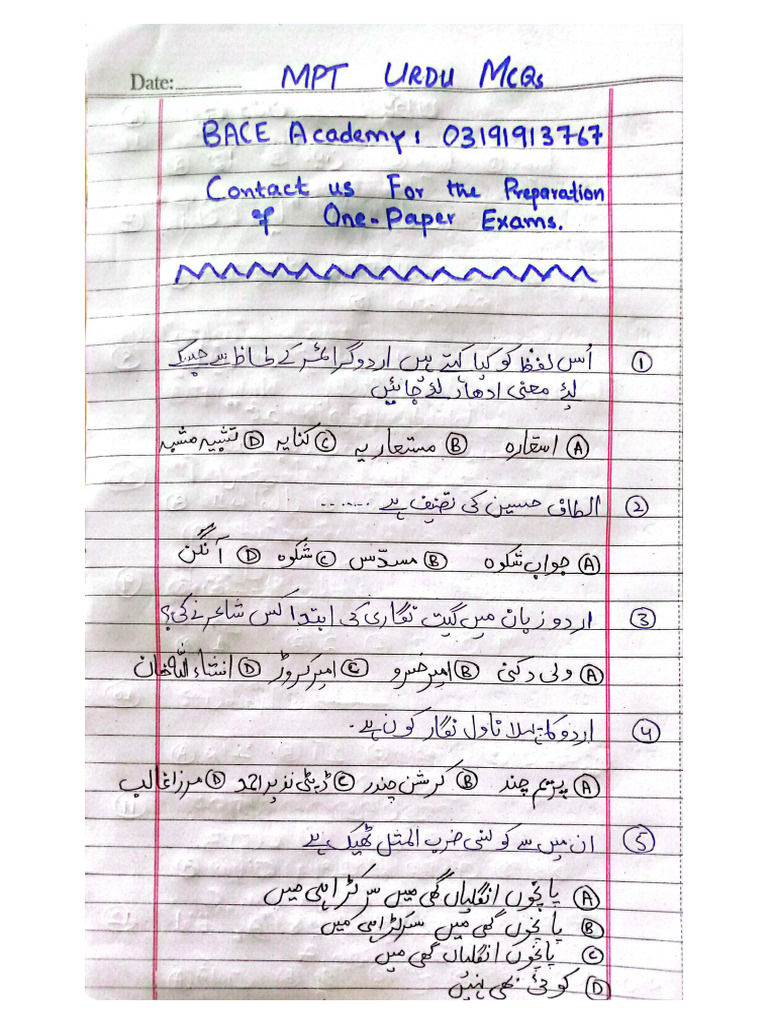 Date: MPT URDU MCQs
BACE Academy: 03191913767
Contact us For the Preparation
of One-Paper Exams.
① اُس لفظ کو کیا کہتے ہیں اردو گرائمر کے لحاظ سے جسکے
لئے معنی ادھار لئے جائیں
Ⓐ استعارہ Ⓑ مستعاریہ Ⓒ کنایہ Ⓓ تشبیہ مشبہ
② الطاف حسین کی تصنیف ہے ........
Ⓐ جواب شکوہ Ⓑ مسدّس Ⓒ شکوہ Ⓓ آنگن
③ اردو زبان میں گیت نگاری کی ابتدا کس شاعر نے کی؟
Ⓐ ولی دکنی Ⓑ امیر خسرو Ⓒ امیر کروڑ Ⓓ انشاء اللہ خان
④ اردو کا پہلا ناول نگار کون ہے۔
Ⓐ پریم چند Ⓑ کرشن چندر Ⓒ ڈپٹی نذیر احمد Ⓓ مرزا غالب
⑤ ان میں سے کونسی ضرب المثل ٹھیک ہے
Ⓐ پانچوں انگلیاں گھی میں سر کڑاہی میں
Ⓑ پانچوں گھی میں سر کڑاہی میں
Ⓒ پانچوں انگلیاں گھی میں
Ⓓ کوئی بھی نہیں